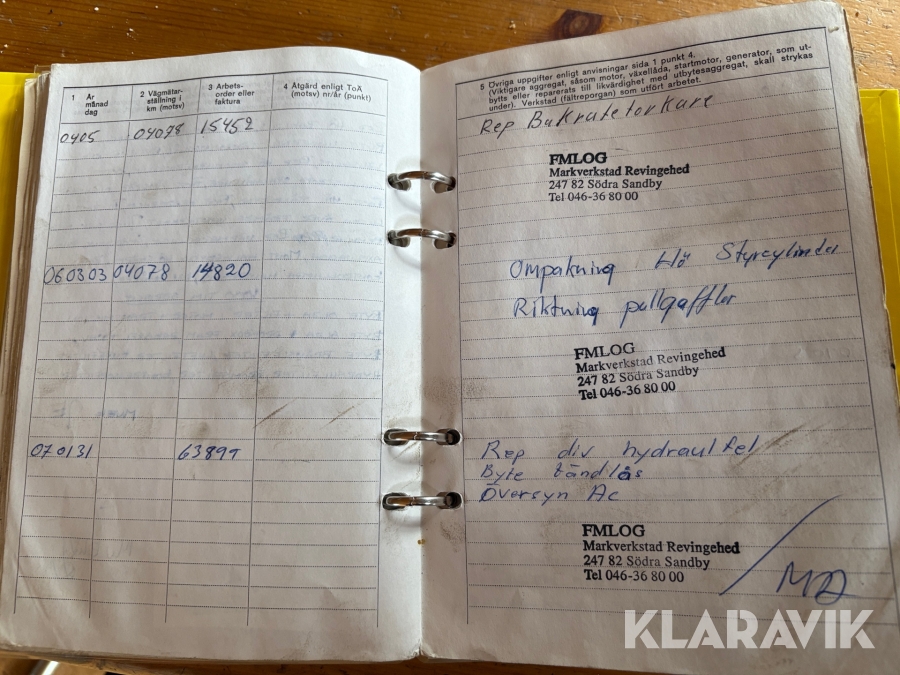 1 År
månad
dag
2 Vägmätar-
ställning i
km (motsv)
3 Arbets-
order eller
faktura
4 Åtgärd enligt ToA
(motsv) nr/år (punkt)
0405 04078 15452
060303 04078 14820
070131 63897
5 Övriga uppgifter enligt anvisningar sida 1 punkt 4.
(Viktigare aggregat, såsom motor, växellåda, startmotor, generator, som ut-
bytts eller reparerats till likvärdighet med utbytesaggregat, skall strykas
under). Verkstad (fältreporgan) som utfört arbetet.
Rep Bakrutetorkare
FMLOG
Markverkstad Revingehed
247 82 Södra Sandby
Tel 046-36 80 00
Ompakning Hö Styrcylinder
Riktning pallgafflar
FMLOG
Markverkstad Revingehed
247 82 Södra Sandby
Tel 046-36 80 00
Rep div hydraulfel
Byte tändlås
Översyn Ac
FMLOG
Markverkstad Revingehed
247 82 Södra Sandby
Tel 046-36 80 00
KLARAVIK